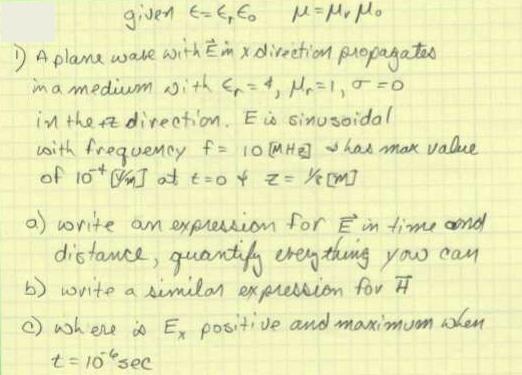 given ε=εᵣε₀ μ=μᵣμ₀
1) A plane wave with E⃗ in x direction propagates
in a medium with εᵣ=4, μᵣ=1, σ=0
in the +z direction. E is sinusoidal
with frequency f= 10 [MHz] & has max value
of 10⁺⁴ [V/m] at t=0 & z= 1/8 [m]
a) write an expression for E⃗ in time and
distance, quantify everything you can
b) write a similar expression for H⃗
c) where is Eₓ positive and maximum when
t=10⁻⁶sec